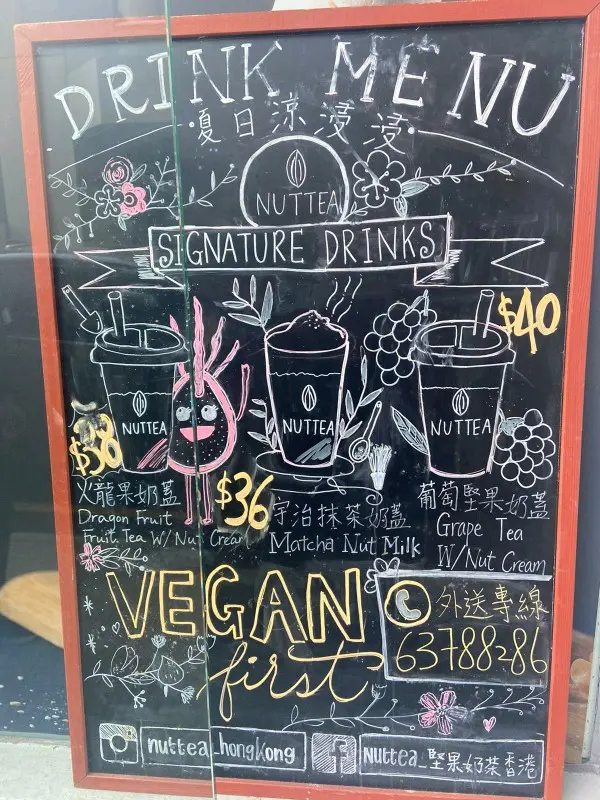 DRINK MENU
·夏日涼浸浸·
NUTTEA
SIGNATURE DRINKS
$40
NUTTEA
NUTTEA
NUTTEA
$38
$36
火龍果奶蓋
Dragon Fruit
Fruit Tea W/ Nut Cream
宇治抹茶奶蓋
Matcha Nut Milk
葡萄堅果奶蓋
Grape Tea
W/Nut Cream
VEGAN
first
外送專線
63788286
nuttea_hongkong
Nuttea_堅果奶茶香港